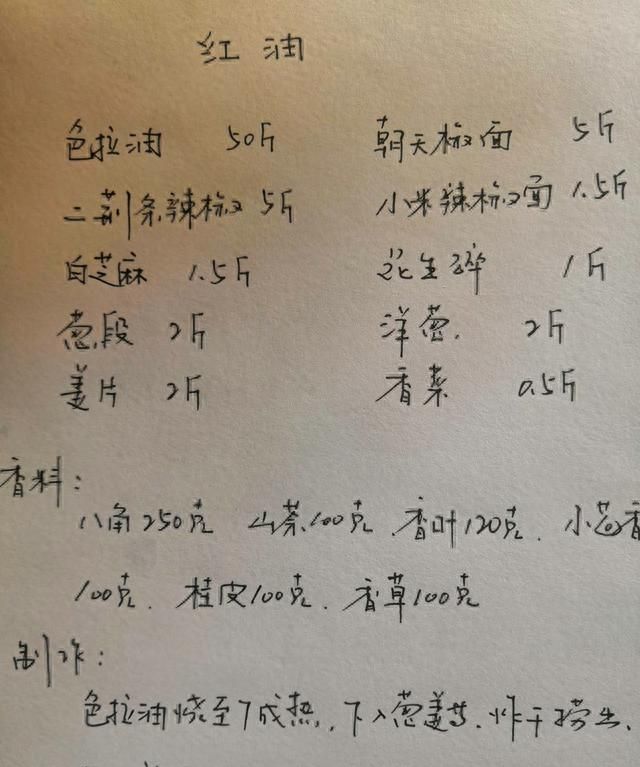 红油
色拉油 50斤 朝天椒面 5斤
二荆条辣椒 5斤 小米辣椒面 1.5斤
白芝麻 1.5斤 花生碎 1斤
葱段 2斤 洋葱. 2斤
姜片 2斤 香菜 0.5斤
香料:
八角250克 山奈100克.香叶120克. 小茴香
100克. 桂皮100克. 香草100克
制作:
色拉油烧至7成热,下入葱姜等.炸干捞出.